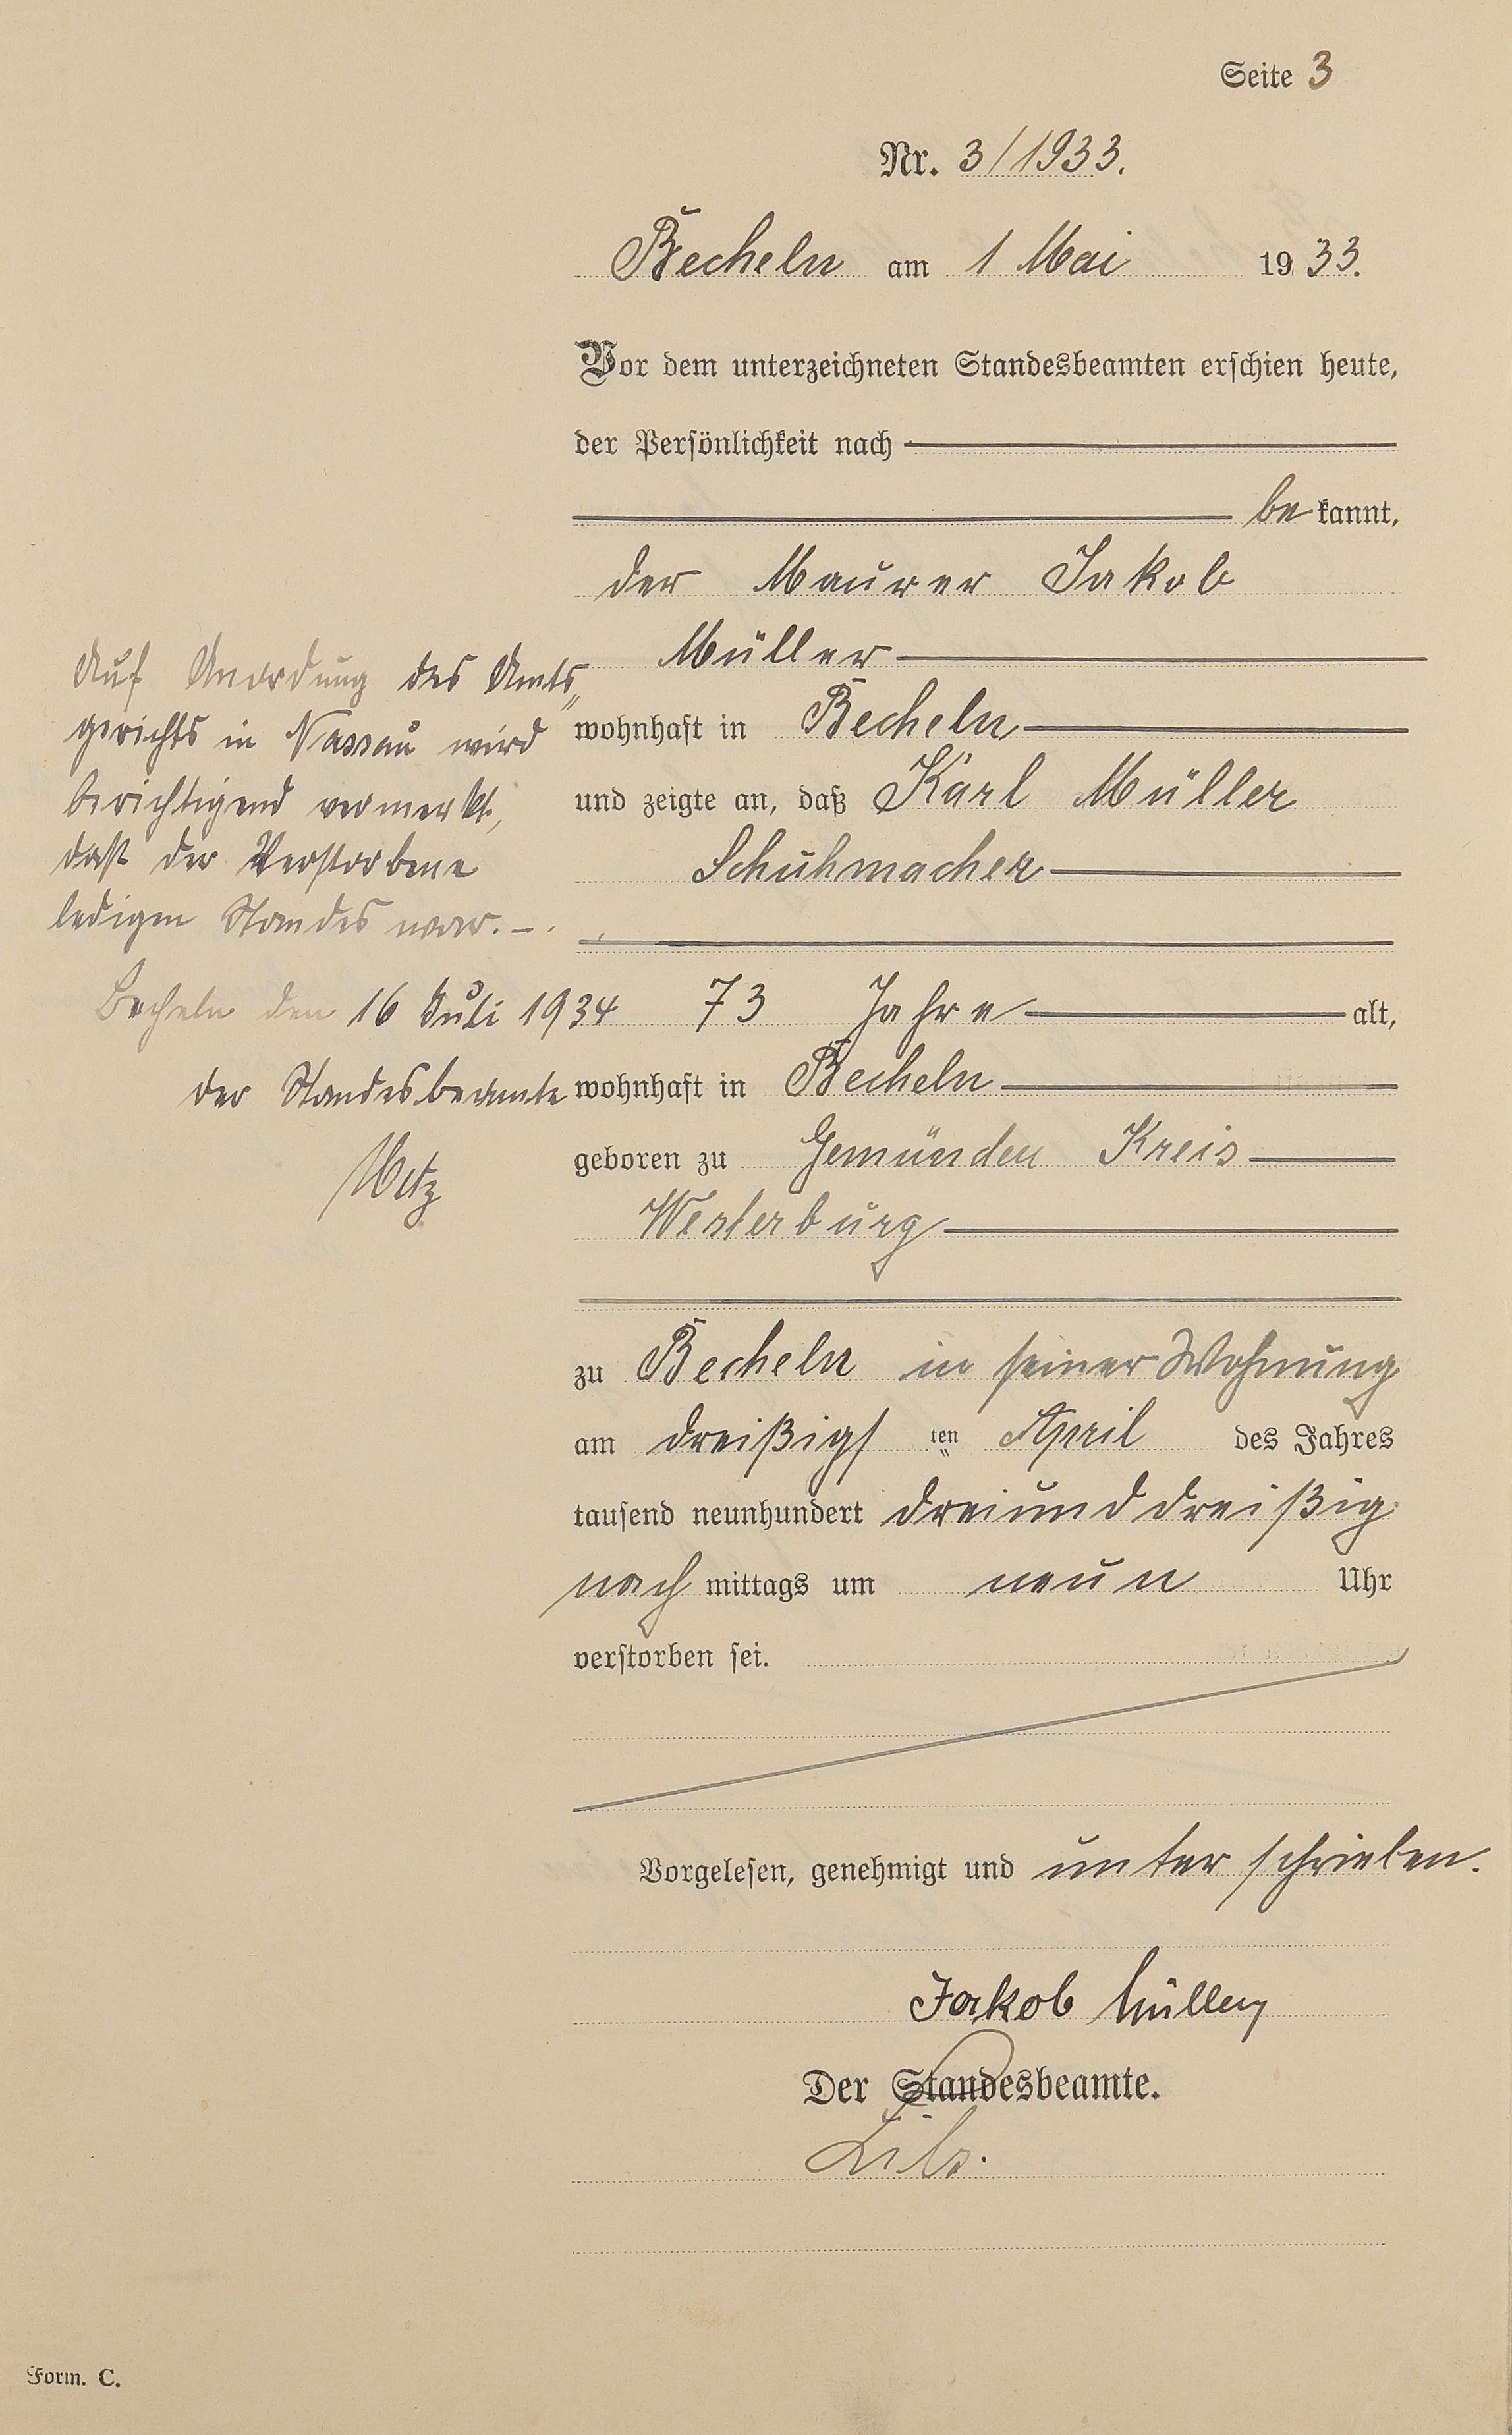 Seite 3
Nr. 3/1933.
Becheln am 1 Mai 1933.
Vor dem unterzeichneten Standesbeamten erschien heute,
der Persönlichkeit nach
be kannt,
der Maurer Jakob
Müller
wohnhaft in Becheln
und zeigte an, daß Karl Müller
Schuhmacher
73 Jahre alt,
wohnhaft in Becheln
geboren zu Gemünden Kreis
Westerburg
zu Becheln in seiner Wohnung
am dreißigs ten April des Jahres
tausend neunhundert dreiunddreißig
nach mittags um neun Uhr
verstorben sei.
Vorgelesen, genehmigt und unterschrieben.
Jakob Müller
Der Standesbeamte.
Auf Anordung des Amts„
gerichts in Nassau wird
berichtigend vermerkt,
daß der Verstorbene
ledigen Standes war. -.
Becheln den 16 Juli 1934
der Standesbeamte
Metz
Form. C.